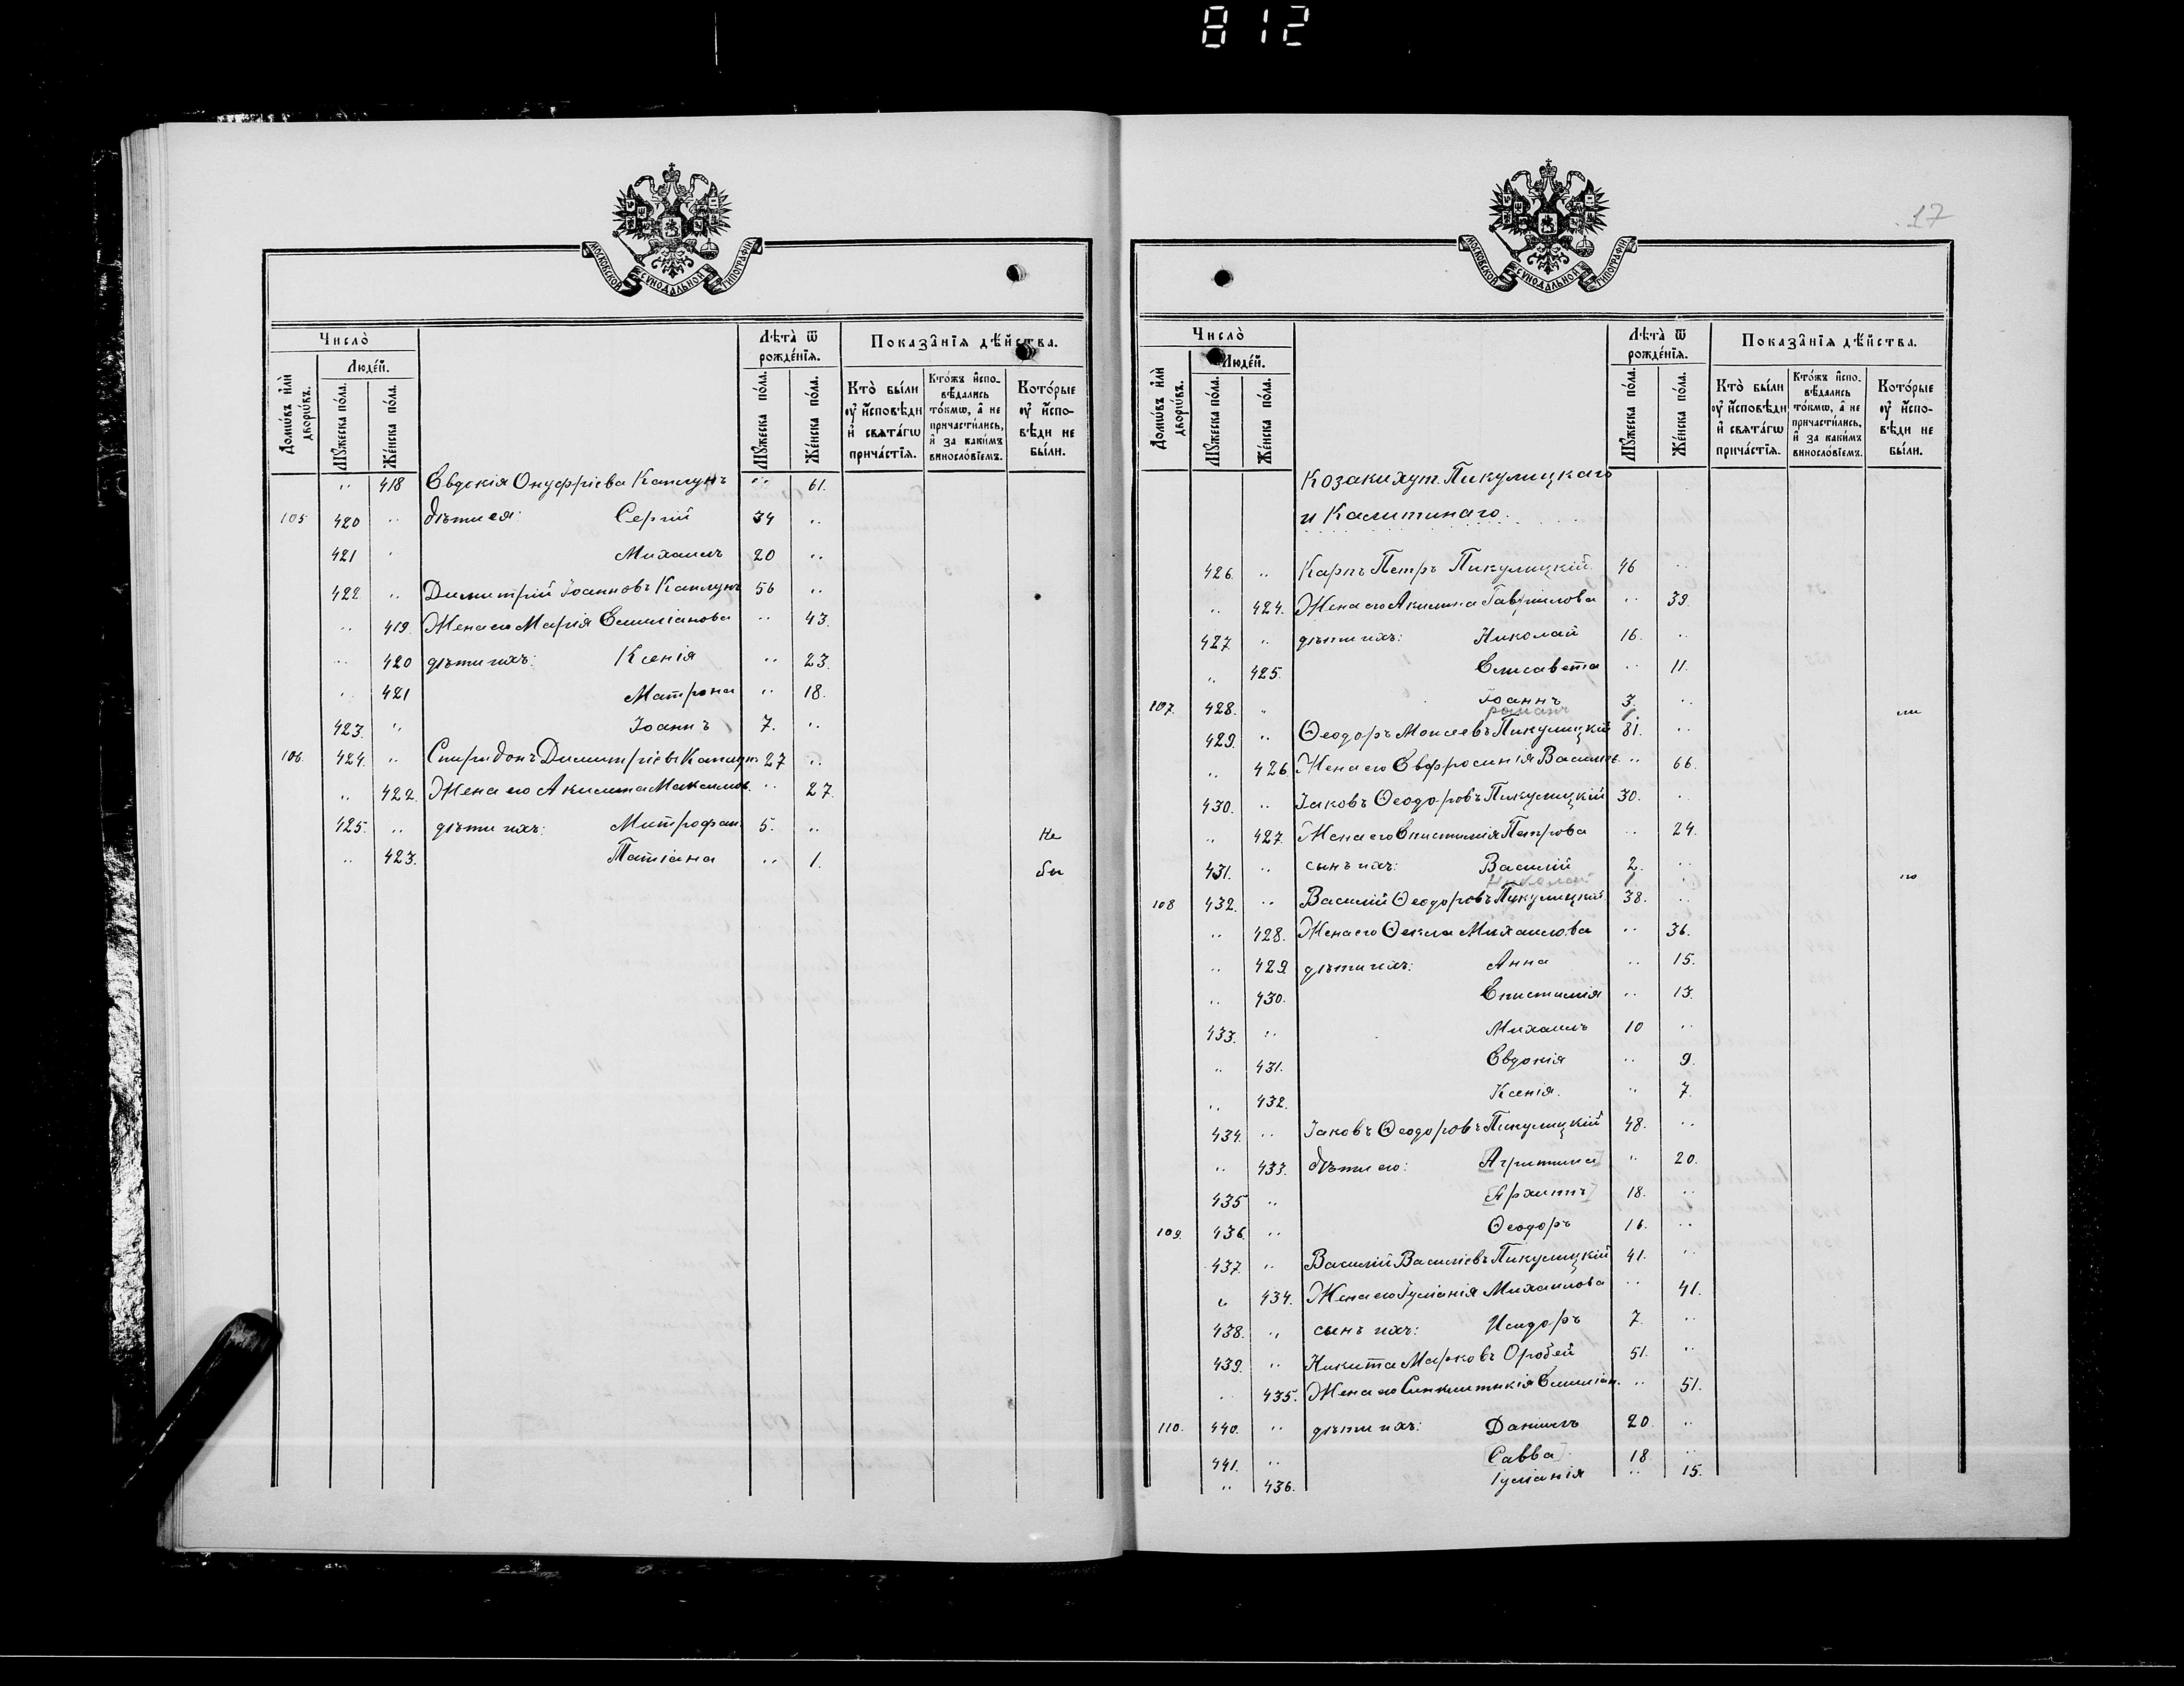 812
МОСКОВСКОЙ СѴНОДАЛЬНОЙ ТИПОГРАФІИ
Число̀
Людей.
Домѡвъ и҆лѝ дворѡвъ.
Мꙋжеска по́ла.
Же́нска по́ла.
Лѣта̀ ѿ рожде́нїѧ.
Мꙋжеска по́ла.
Же́нска по́ла.
Показа̑нїѧ дѣ́йства.
Кто̀ бы́ли ᲂу҆ и҆сповѣди и҆ свѧта́гѡ прича́стїѧ.
Кто́жъ и҆сповѣдались то́кмѡ, а҆ не причасти́лись, и҆ за каки́мъ винослові́емъ.
Кото́рые ᲂу҆ и҆сповѣди не бы́ли.
" 418 Евдокія Онуфріева Каплунъ " 61.
105 420 " дѣти ея: Сергій 34 "
421 " Михаилъ 20 "
422 " Димитрій Іоанновъ Каплунъ 56 "
" 419. Жена его Марія Емиліанова " 43.
" 420 дѣти ихъ: Ксенія " 23.
" 421 Матрона " 18.
423. " Іоаннъ 7. "
106. 424. " Спиридонъ Димитріевъ Каплунъ 27 "
" 422. Жена его Акилина Максимов. " 27.
425. " дѣти ихъ: Митрофан. 5. " Не
" 423. Татіана " 1. бы
17
МОСКОВСКОЙ СѴНОДАЛЬНОЙ ТИПОГРАФІИ
Число̀
Людей.
Домѡвъ и҆лѝ дворѡвъ.
Мꙋжеска по́ла.
Же́нска по́ла.
Лѣта̀ ѿ рожде́нїѧ.
Мꙋжеска по́ла.
Же́нска по́ла.
Показа̑нїѧ дѣ́йства.
Кто̀ бы́ли ᲂу҆ и҆сповѣди и҆ свѧта́гѡ прича́стїѧ.
Кто́жъ и҆сповѣдались то́кмѡ, а҆ не причасти́лись, и҆ за каки́мъ винослові́емъ.
Кото́рые ᲂу҆ и҆сповѣди не бы́ли.
Козаки хут. Пикулицкаго
и Калитинаго.
426. " Карпъ Петръ Пикулицкій. 46 "
" 424. Жена его Акилина Гавріилова " 39.
427 " дѣти ихъ: Николай 16. "
" 425. Елисавета " 11.
107. 428. " Іоаннъ 3. " ли
романъ 1.
429. " Ѳеодоръ Моисеевъ Пикулицкій 81. "
" 426 Жена его Евфросинія Василіев. " 66.
430. " Іаковъ Ѳеодоровъ Пикулицкій 30. "
" 427. Жена его Епистимія Петрова " 24.
431. " сынъ ихъ: Василій 2. "
Николай 1.
108 432. " Василій Ѳеодоровъ Пикулицкій 38. "
" 428. Жена его Ѳекла Михаилова " 36.
" 429. дѣти ихъ: Анна " 15.
" 430. Епистимія " 13.
433. " Михаилъ 10 "
" 431. Евдокія " 9.
" 432. Ксенія. " 7.
434. " Іаковъ Ѳеодоровъ Пикулицкій 48. "
" 433. дѣти его: [Агрипина] " 20.
435 " [Архипъ] 18. "
109. 436. " Ѳеодоръ 16. "
437. " Василій Василіевъ Пикулицкій 41. "
" 434. Жена его Іуліанія Михаилова " 41.
438. " сынъ ихъ: Исидоръ 7. "
439. " Никита Марковъ Оробей 51. "
" 435. Жена его Синклитикія Емиліан. " 51.
110. 440. " дѣти ихъ: Даніилъ 20. "
441. " [Савва]. 18 "
" 436. Іуліанія " 15.